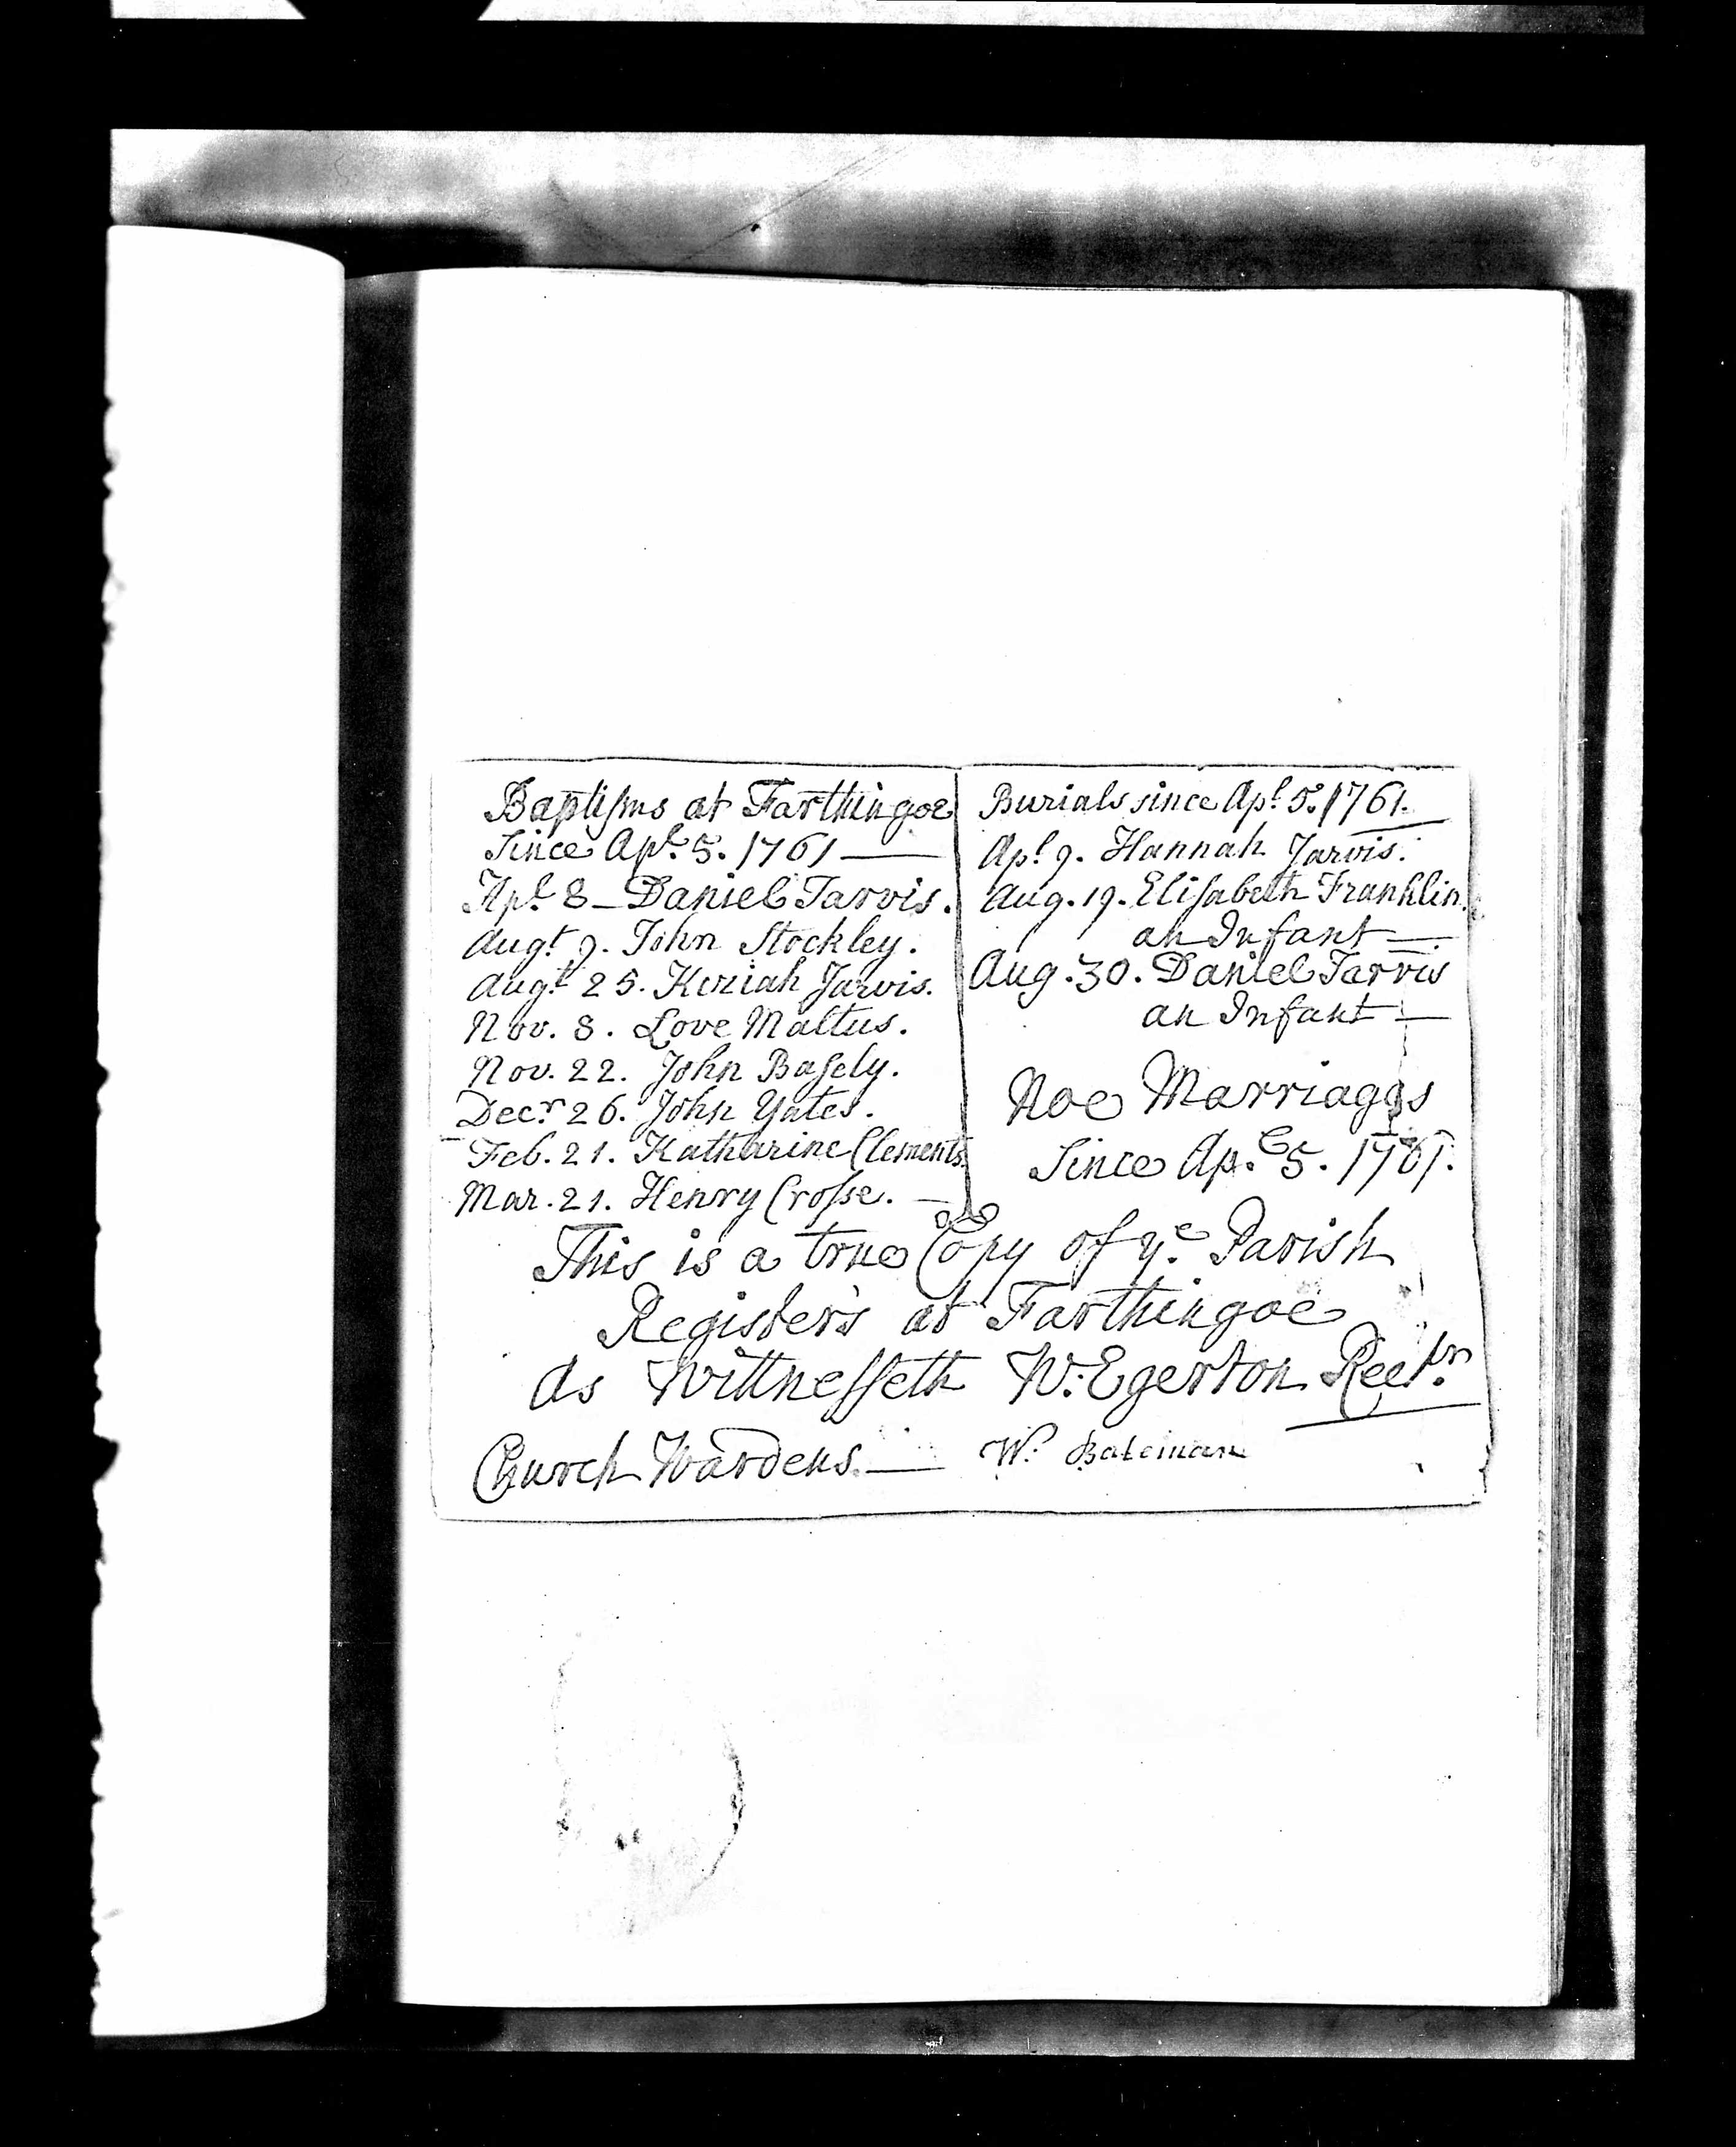 Baptisms at Farthingoe
Since Apl. 5. 1761
Apl. 8 Daniel Jarvis.
Augt. 9. John Stockley.
Augt. 25. Keziah Jarvis.
Nov. 8. Love Maltus.
Nov. 22. John Basely.
Decr. 26. John Yates.
Feb. 21. Katharine Clements
Mar. 21. Henry Crosse.
Burials since Apl. 5. 1761.
Apl. 9. Hannah Jarvis.
Aug. 19. Elisabeth Franklin.
an Infant
Aug. 30. Daniel Jarvis
an Infant
Noe Marriages
Since Ap.l 5. 1761.
This is a true Copy of ye. Parish
Register's at Farthingoe
As Wittnesseth W. Egerton Rectr.
Church Wardens. W. Bateman